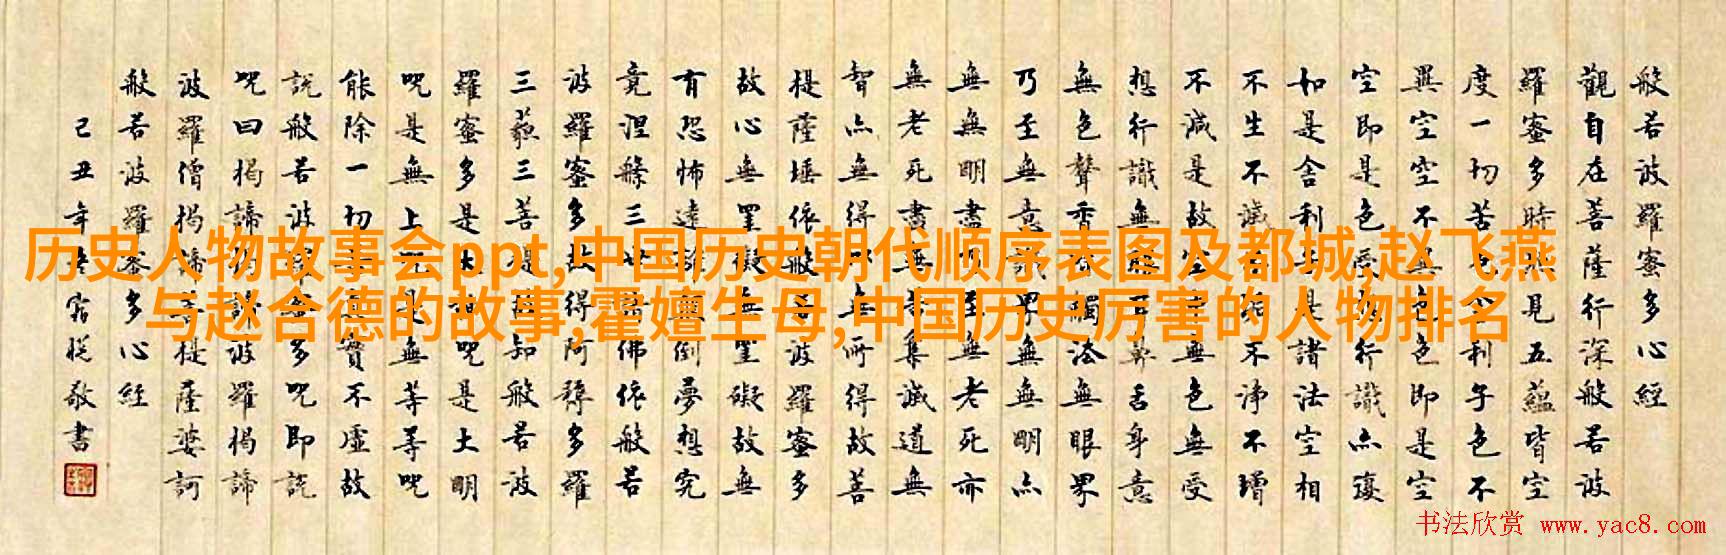 历史人物故事会ppt,中国历史朝代顺序表图及都城,赵飞燕
与赵合德的故事,霍嬗生母,中国历史厉害的人物排名
般若波羅蜜多心經
觀自在菩薩行深般若波
羅蜜多時照見五蘊皆空
度一切苦厄舍利子色不
異空空不異色色即是空
空即是色受想行識亦復
如是舍利子是諸法空相
不生不滅不垢不淨不增
不減是故空中無色無受
想行識無眼耳鼻舌身意
無色聲香味觸法無眼界
乃至無意識界無無明亦
無無明盡乃至無老死亦
無老死盡無苦集滅道無
智亦無得以無所得故菩
提薩埵依般若波羅蜜多
故心無罣礙無罣礙故無
有恐怖遠離顛倒夢想究
竟涅槃三世諸佛依般若
波羅蜜多故得阿耨多羅
三藐三菩提故知般若波
羅蜜多是大神呪是大明
呪是無上呪是無等等呪
能除一切苦真實不虛故
說般若波羅蜜多呪即說
呪曰揭諦揭諦波羅揭諦
波羅僧揭諦菩提薩婆訶
般若波羅蜜多心經
己丑年敬書
书法欣赏 www.yac8.com